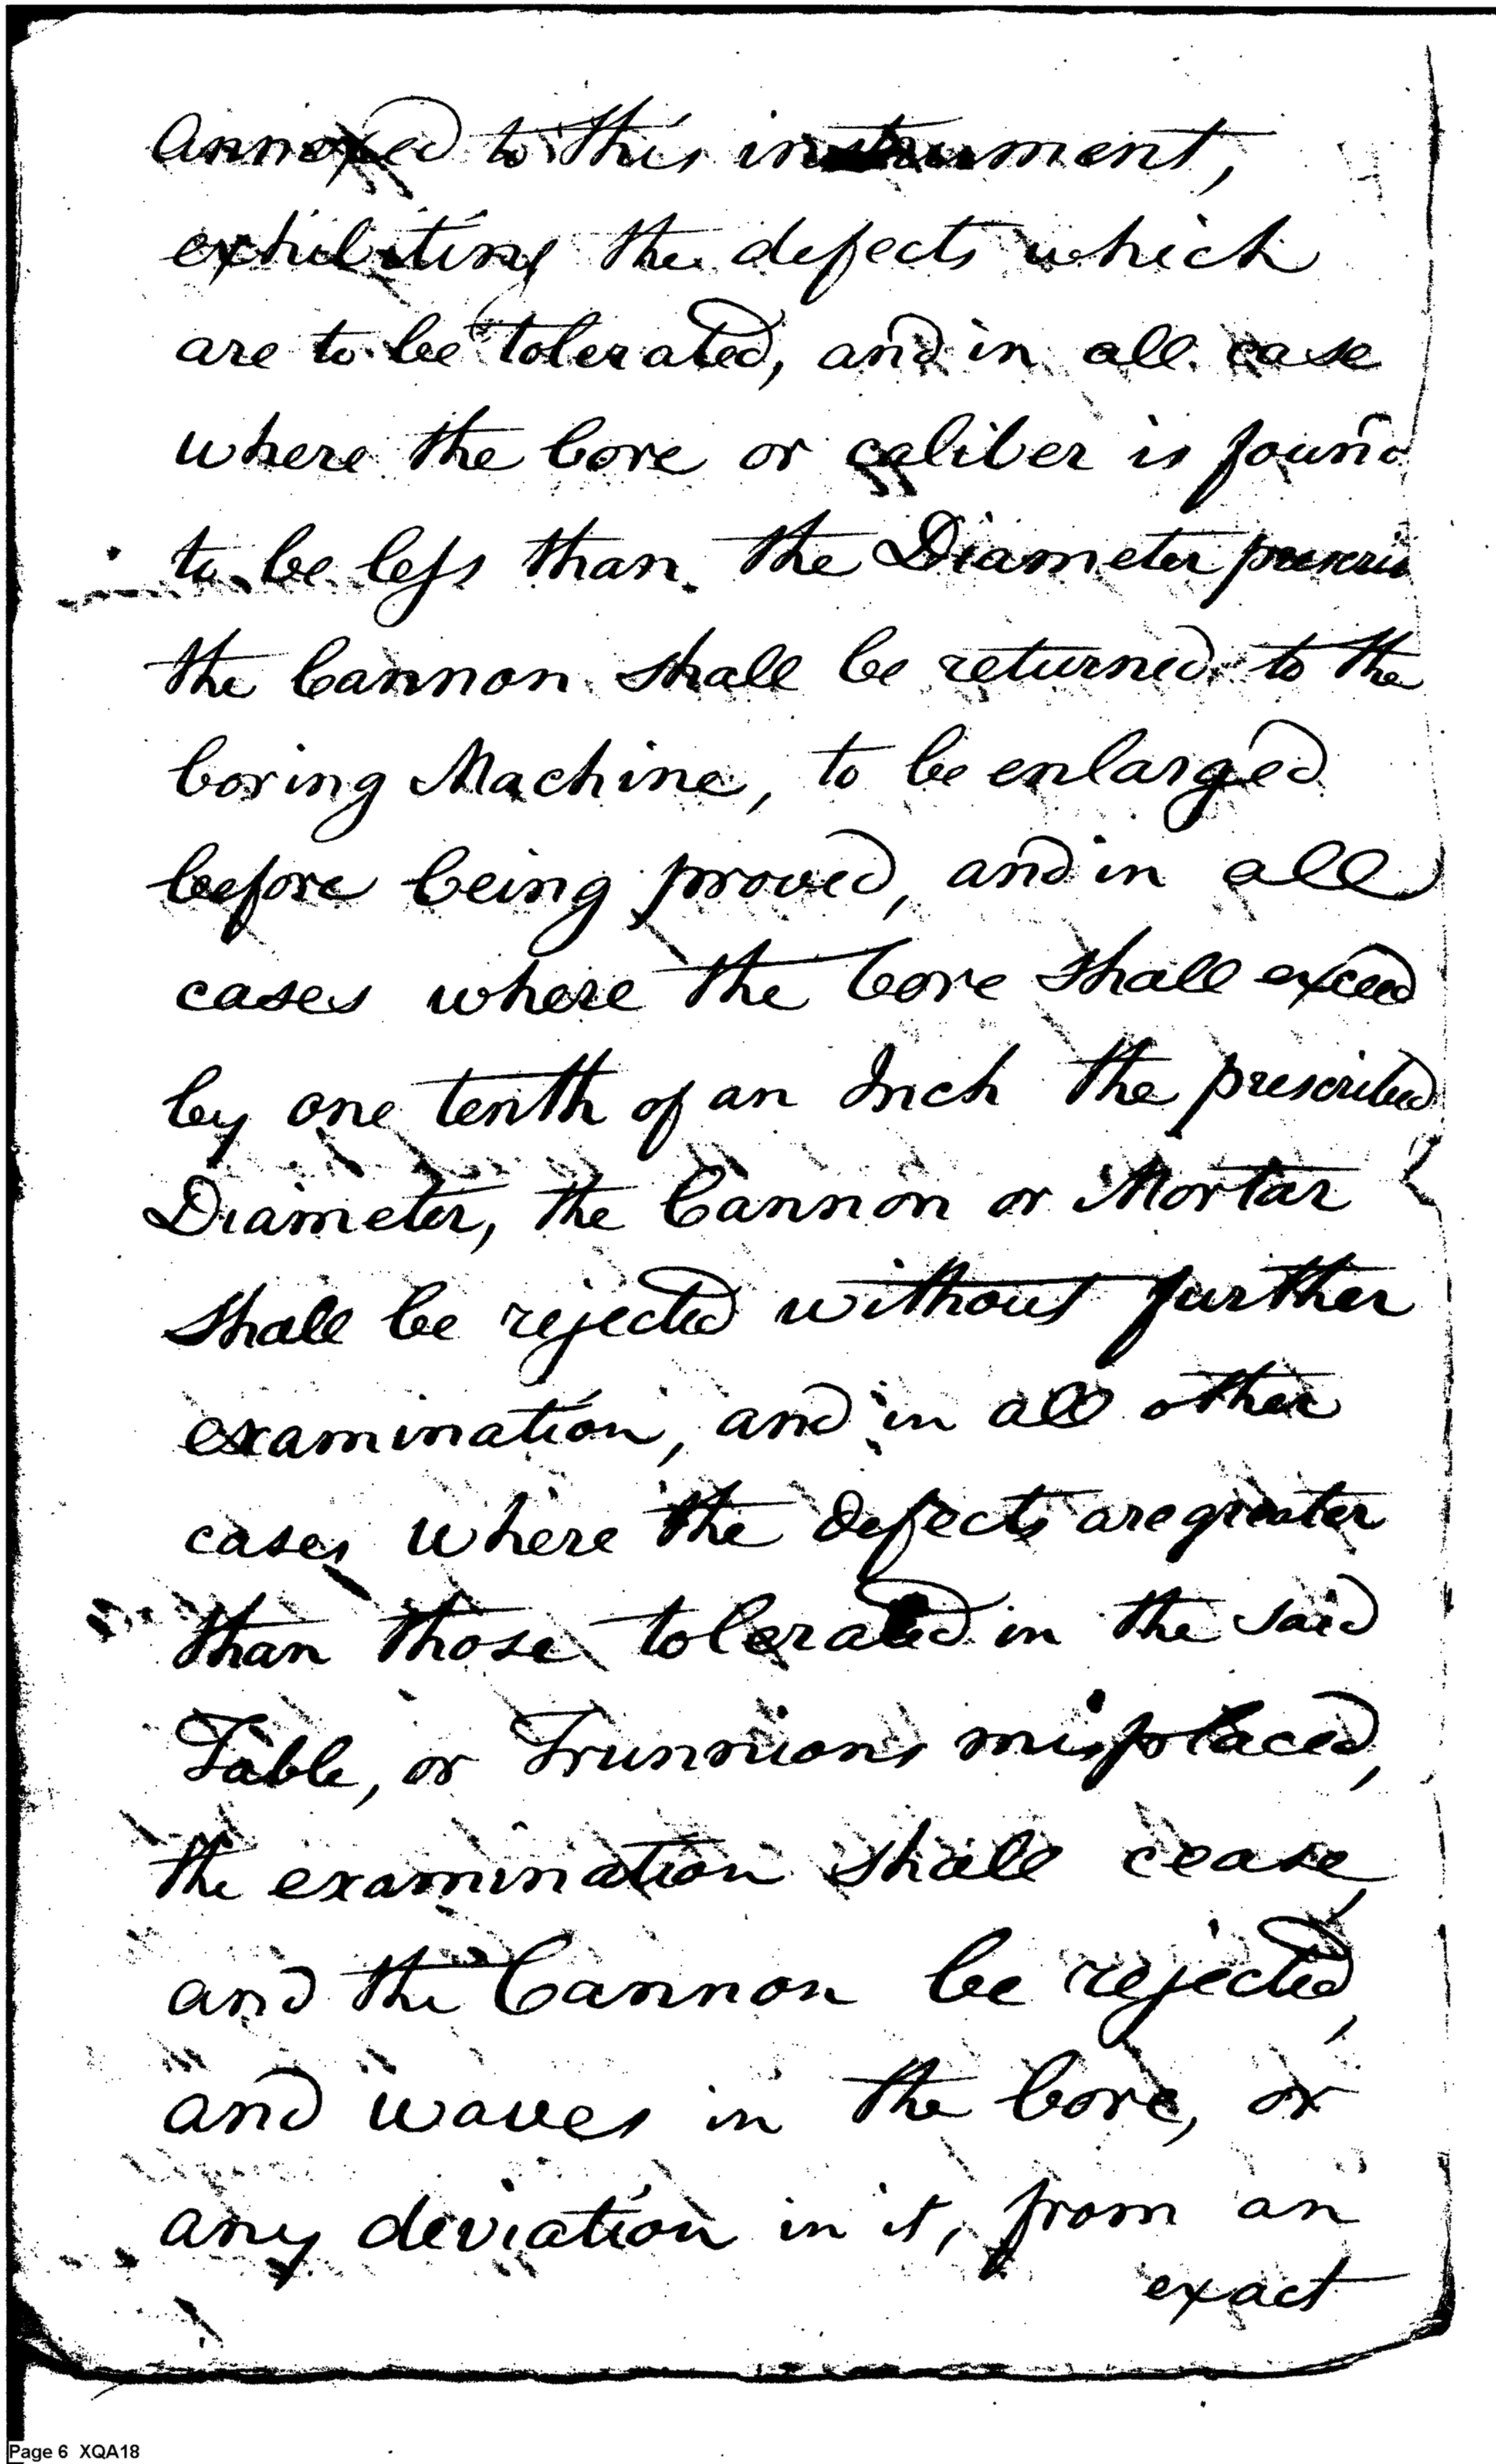 annexed to this instrument,
exhibiting the defects which
are to be tolerated, and in all case
where the bore or caliber is found
to be less than the Diameter prescrib
the Cannon shall be returned to the
boring Machine, to be enlarged
before being proved, and in all
cases where the bore shall exceed
by one tenth of an Inch the prescribed
Diameter, the Cannon or Mortar
shall be rejected without further
examination, and in all other
cases where the defects are greater
than those tolerated in the said
Table, or Trunnions misplaced,
the examination shall cease,
and the Cannon be rejected,
and waves in the bore, or
any deviation in it, from an
exact
Page 6 XQA18